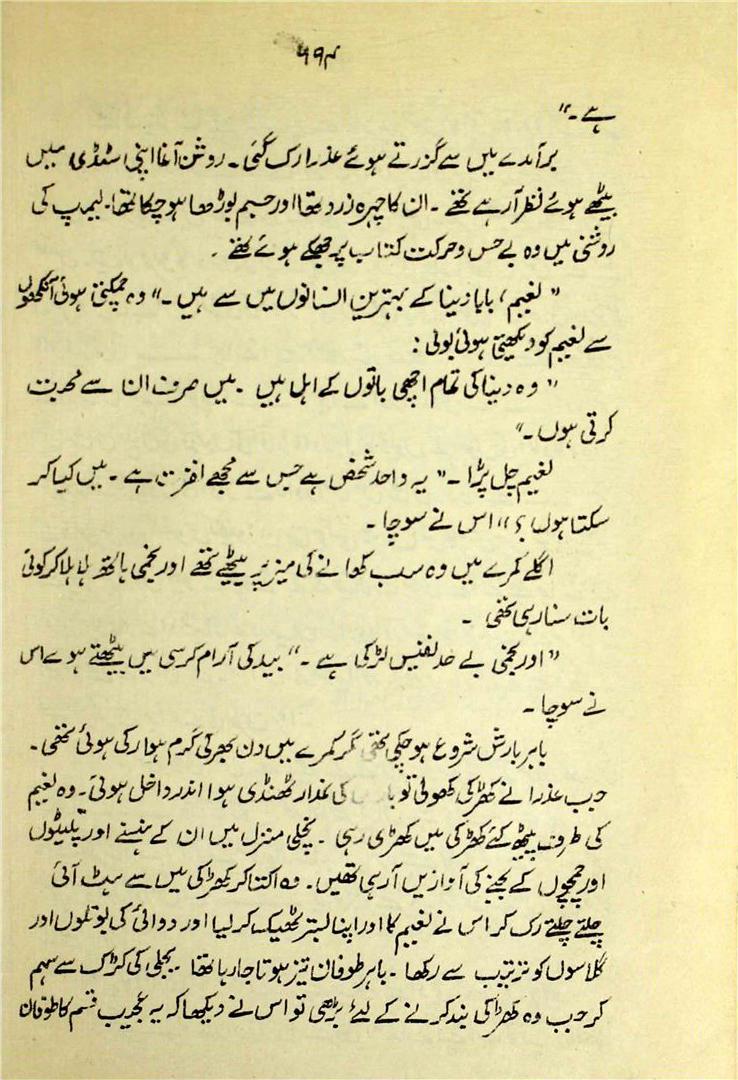 ۵۱۴
ہے۔"
برآمدے میں سے گزرتے ہوئے عذرا رک گئی۔ روشن آغا اپنی اسٹڈی میں
بیٹھے ہوئے نظر آ رہے تھے۔ ان کا چہرہ زرد تھا اور جسم بوڑھا ہو چکا تھا۔ لیمپ کی
روشنی میں وہ بے حس و حرکت کتاب پر جھکے ہوئے تھے۔
"نعیم، بابا دنیا کے بہترین انسانوں میں سے ہیں۔" وہ چمکتی ہوئی آنکھوں
سے نعیم کو دیکھتی ہوئی بولی:
"وہ دنیا کی تمام اچھی باتوں کے اہل ہیں۔ میں صرف ان سے محبت
کرتی ہوں۔"
نعیم چل پڑا۔ "یہ واحد شخص ہے جس سے مجھے نفرت ہے۔ میں کیا کر
سکتا ہوں؟" اس نے سوچا۔
اگلے کمرے میں وہ سب کھانے کی میز پر بیٹھے تھے اور نجمی ہاتھ ہلا ہلا کر کوئی
بات سنا رہی تھی۔
"اور نجمی بے حد نفیس لڑکی ہے۔" بید کی آرام کرسی میں بیٹھتے ہوئے اس
نے سوچا۔
باہر بارش شروع ہو چکی تھی مگر کمرے میں دن بھر کی گرم ہوا رکی ہوئی تھی۔
جب عذرا نے کھڑکی کھولی تو کی نمدار ٹھنڈی ہوا اندر داخل ہوئی۔ وہ نعیم
کی طرف پیٹھ کئے کھڑکی میں کھڑی رہی۔ نچلی منزل میں ان کے ہنسنے اور پلیٹوں
اور چمچوں کے بجنے کی آوازیں آ رہی تھیں۔ وہ اکتا کر کھڑکی میں سے ہٹ آئی
چلتے چلتے رک کر اس نے نعیم کا اور اپنا بستر ٹھیک کر لیا اور دوائی کی بوتلوں اور
گلاسوں کو ترتیب سے رکھا۔ باہر طوفان تیز ہوتا جا رہا تھا۔ بجلی کی کڑک سے سہم
کر جب وہ کھڑکی بند کرنے کے لئے بڑھی تو اس نے دیکھا کہ یہ عجیب قسم کا طوفان